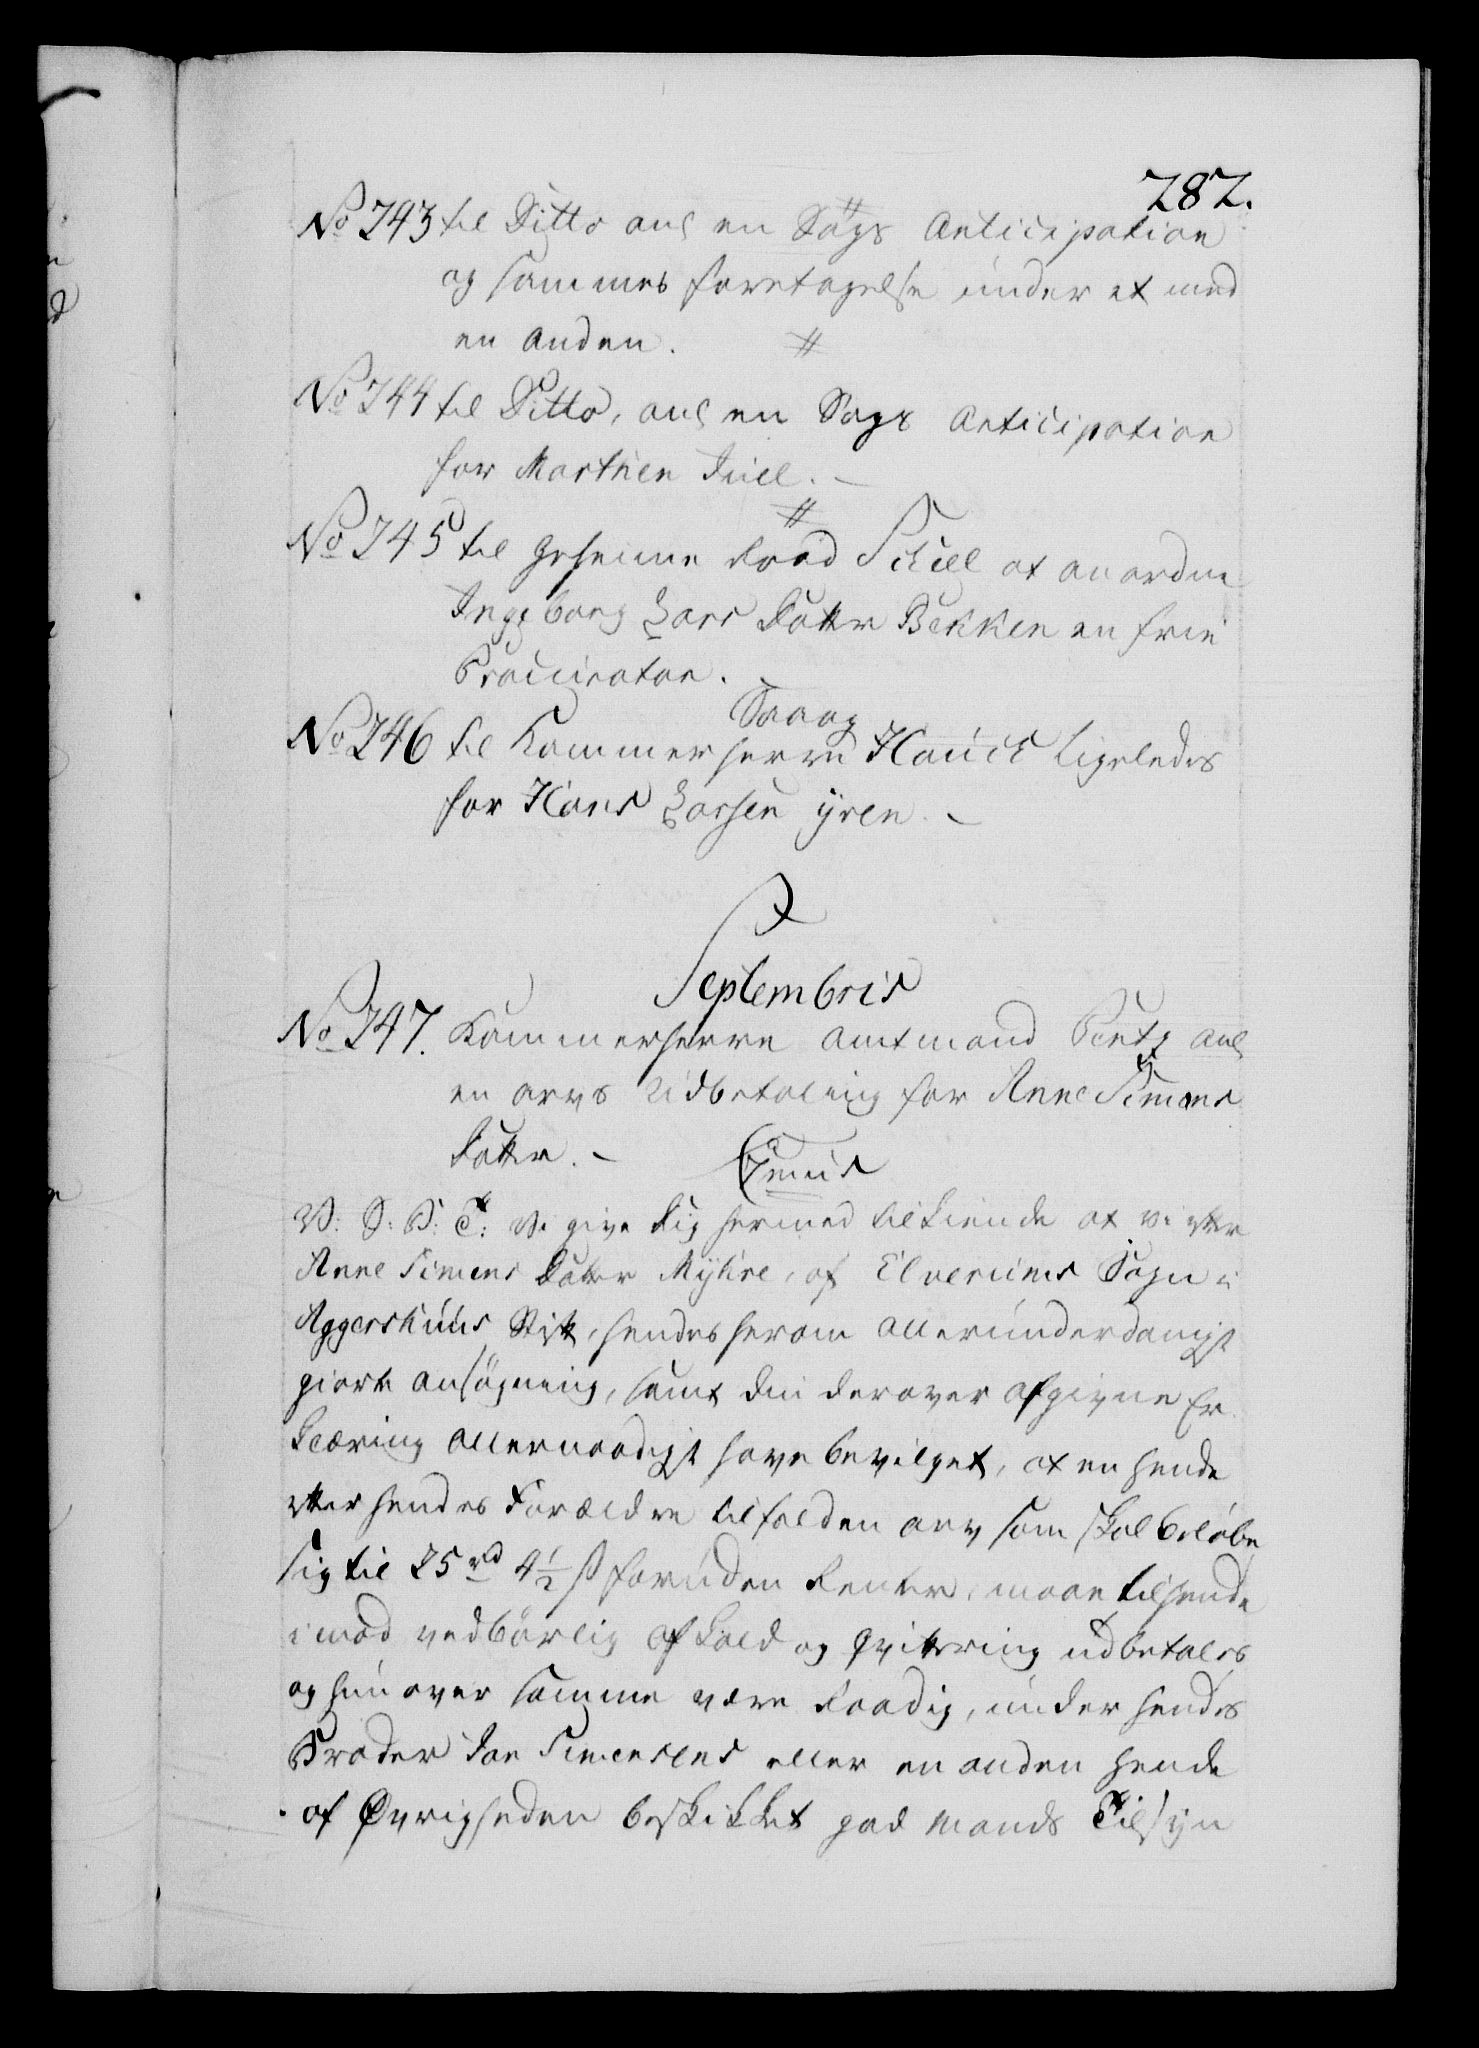 282.
No 743 til Ditto anl en Sags Anticipation
og sammes foretagelse under et med
en anden.
No 744 til Ditto, anl en Sags Anticipation
for Marthen Juel.
No 745 til geheime Raad Schell at anordne
Ingeborg Lars Datter Bekken en frie
Procurator.
No 746 til Kammerherre Hauch ligeledes
for Hans Larsen
Septembris
No 747. Kammerherre Amtmand Pentz anl
en arvs Udbetaling for Anne Simens
Datter.
V: S: P: T: Vi give dig hermed tilkiende at vi efter
Anne Simens Datter Myhre, af Elverums Sogn i
Aggershuus Stift, hendes herom allerunderdanigst
giorte ansøgning, samt din derover afgivne Er
klæring allernaadigst have bevilget, at en hende
efter hendes Forældre tilfalden arv som skal beløbe
sig til 75 rd 4½ s foruden Renter, maae til hende
imod vedbørlig afkald og Qvittering udbetales
og hun over samme være Raadig, under hendes
Broder Joe Simensens eller en anden hende
af Øvrigheden beskikket god Mands Tilsyn